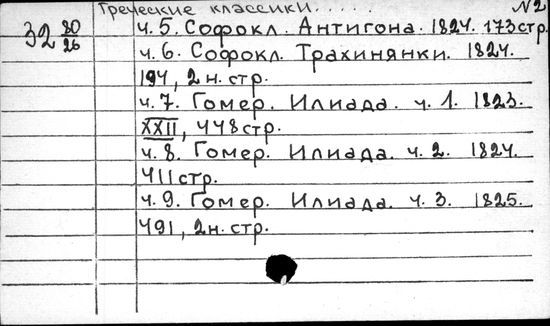 Греческие классики..... №2
32 80/26
ч. 5. Софокл. Антигона. 1824. 173 стр.
ч. 6. Софокл. Трахинянки. 1824.
194, 2 н. стр.
ч. 7. Гомер. Илиада. ч. 1. 1823.
XXII, 448 стр.
ч. 8. Гомер. Илиада. ч. 2. 1824.
411 стр.
ч. 9. Гомер. Илиада. ч. 3. 1825.
491, 2 н. стр.